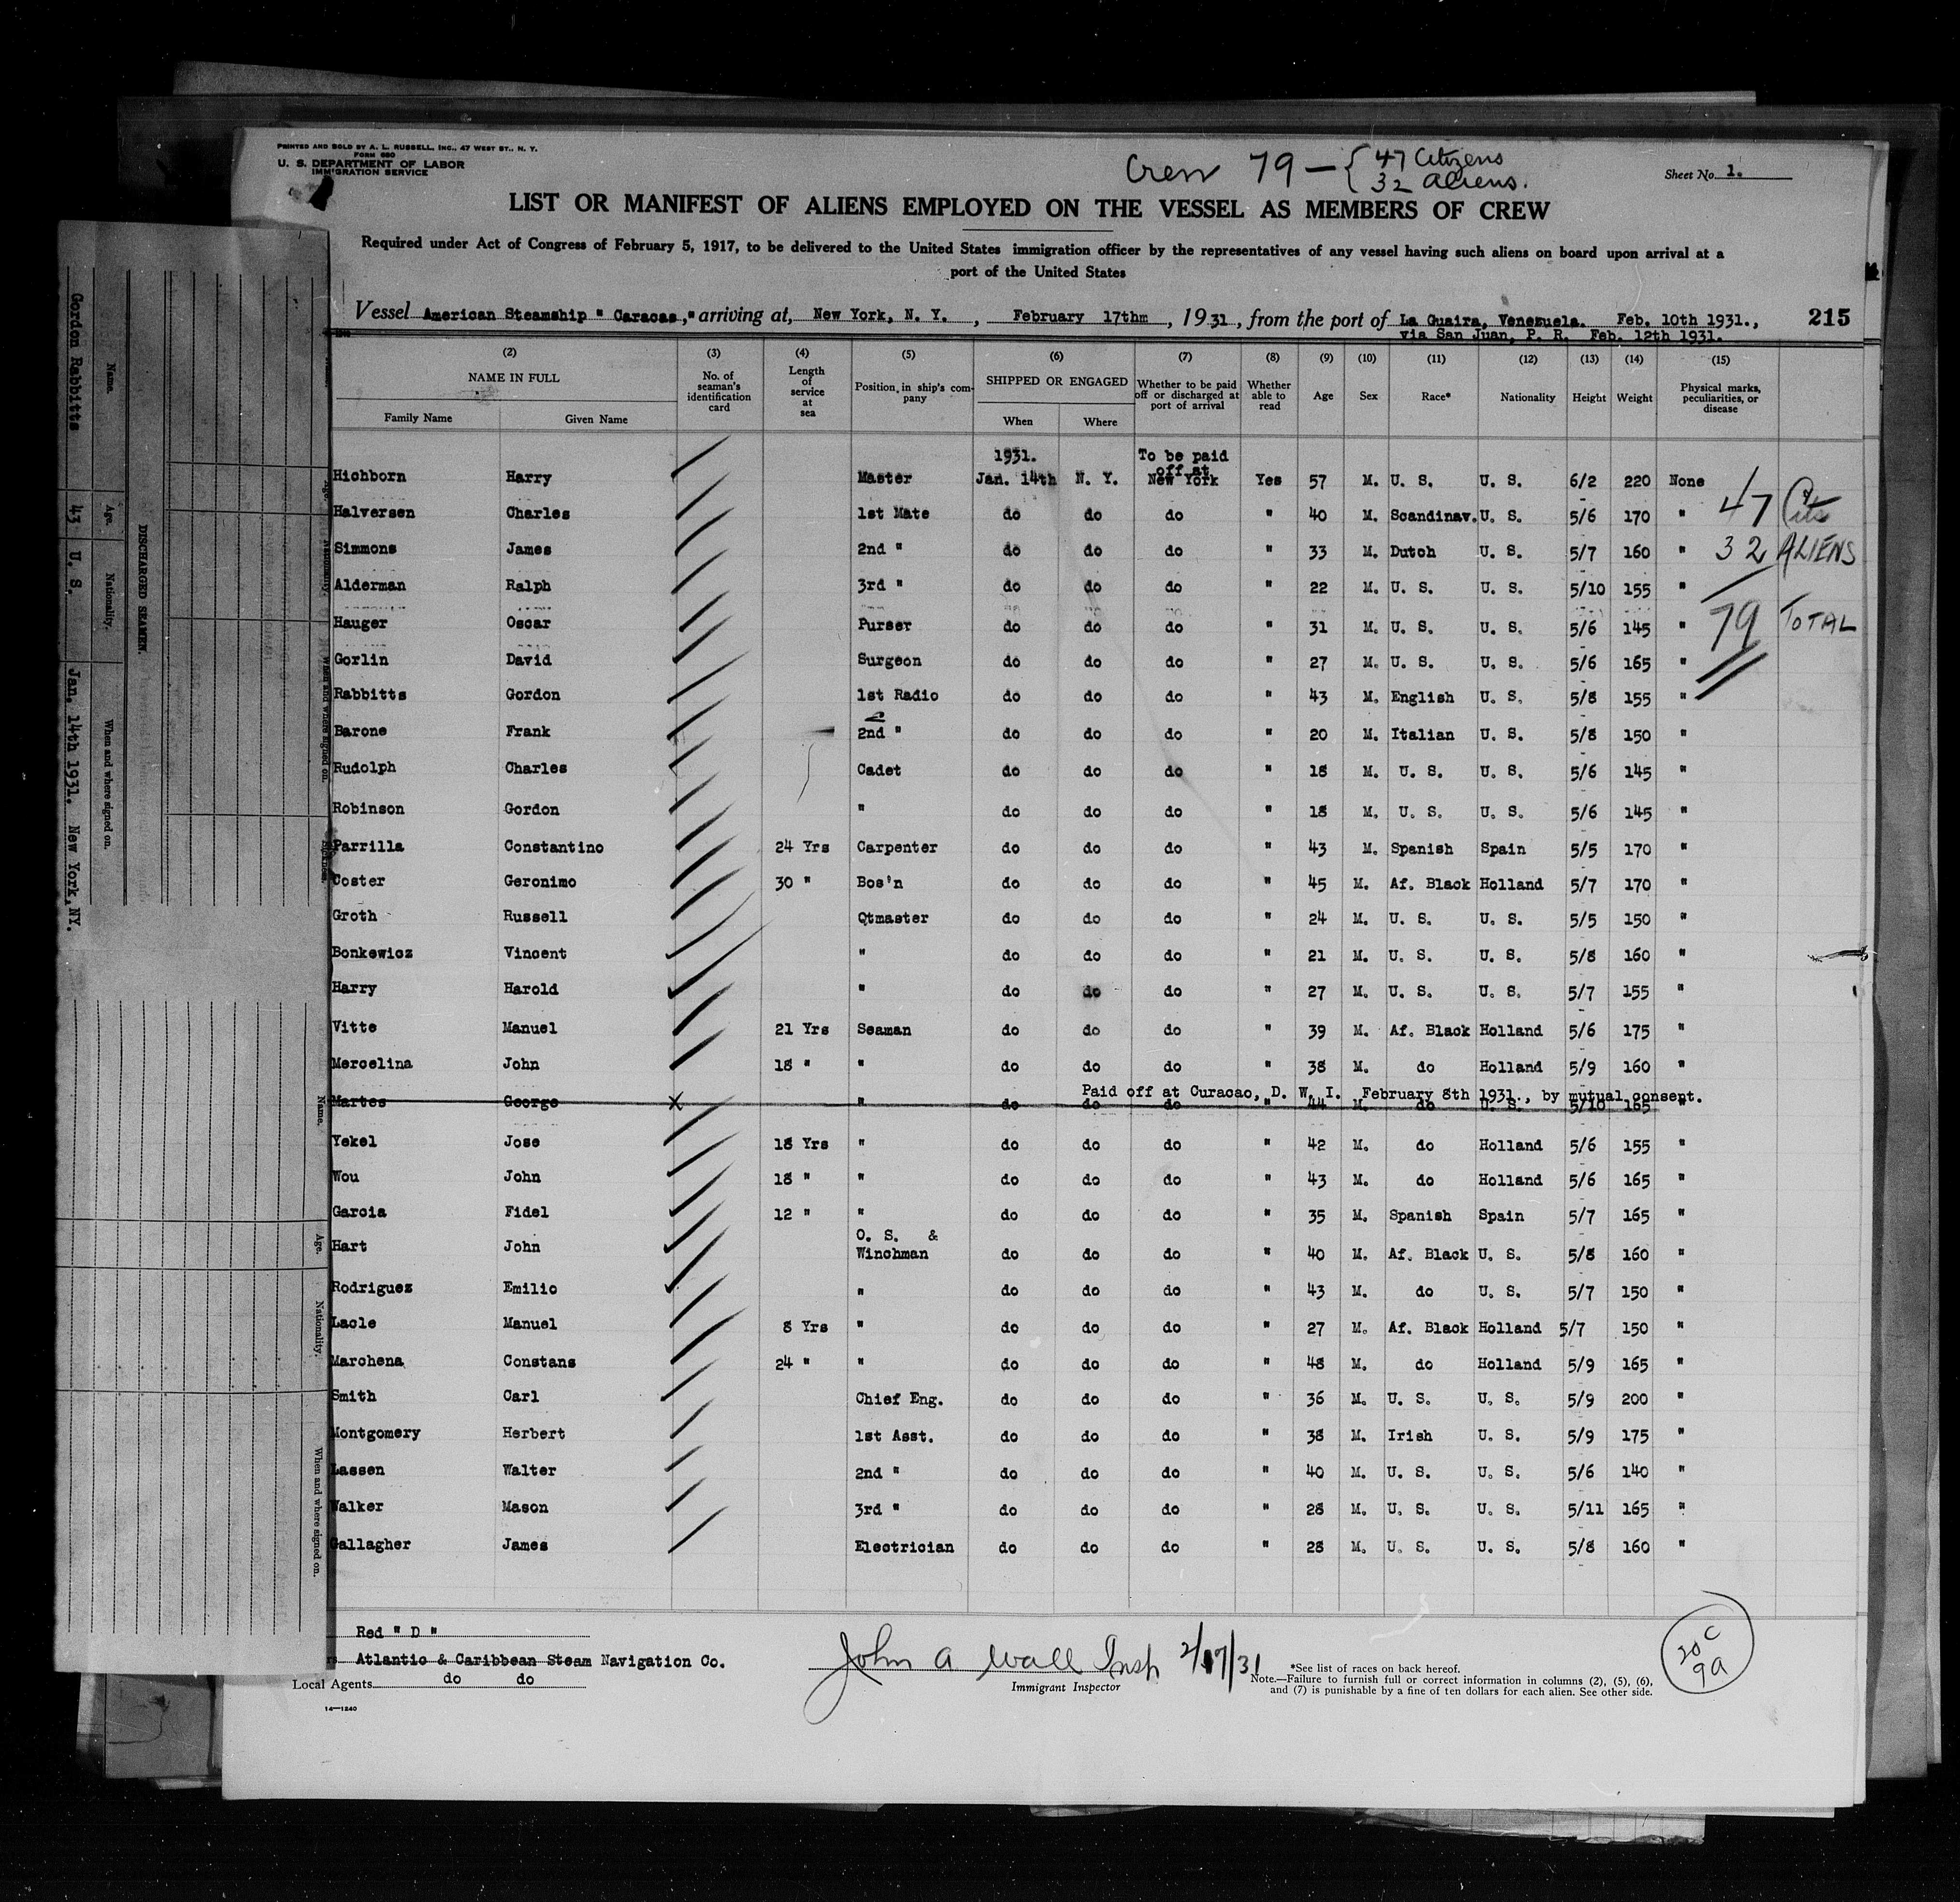 PRINTED AND SOLD BY A. L. RUSSELL, INC., 47 WEST ST., N. Y.
FORM 680
U. S. DEPARTMENT OF LABOR
IMMIGRATION SERVICE
Crew 79 — { 47 Citizens
32 aliens.
Sheet No. 1.
LIST OR MANIFEST OF ALIENS EMPLOYED ON THE VESSEL AS MEMBERS OF CREW
Required under Act of Congress of February 5, 1917, to be delivered to the United States immigration officer by the representatives of any vessel having such aliens on board upon arrival at a
port of the United States
Vessel American Steamship " Caracas," arriving at, New York, N. Y. , February 17thm , 1931, from the port of La Guaira, Venezuela. Feb. 10th 1931., 215
via San Juan, P. R. Feb. 12th 1931.
(2) (3) (4) (5) (6) (7) (8) (9) (10) (11) (12) (13) (14) (15)
NAME IN FULL
Family Name Given Name
No. of seaman's identification card
Length of service at sea
Position in ship's company
SHIPPED OR ENGAGED
When Where
Whether to be paid off or discharged at port of arrival
Whether able to read
Age Sex Race* Nationality Height Weight
Physical marks, peculiarities, or disease
1931. To be paid off at
Hichborn Harry Master Jan. 14th N. Y. New York Yes 57 M. U. S. U. S. 6/2 220 None
Halversen Charles 1st Mate do do do " 40 M. Scandinav. U. S. 5/6 170 " 47 Cits
Simmons James 2nd " do do do " 33 M. Dutch U. S. 5/7 160 " 32 ALIENS
Alderman Ralph 3rd " do do do " 22 M. U. S. U. S. 5/10 155 "
Hauger Oscar Purser do do do " 31 M. U. S. U. S. 5/6 145 " 79 TOTAL
Gorlin David Surgeon do do do " 27 M. U. S. U. S. 5/6 165 "
Rabbitts Gordon 1st Radio do do do " 43 M. English U. S. 5/8 155 "
Barone Frank 2nd " do do do " 20 M. Italian U. S. 5/8 150 "
Rudolph Charles Cadet do do do " 18 M. U. S. U. S. 5/6 145 "
Robinson Gordon " do do do " 18 M. U. S. U. S. 5/6 145 "
Parrilla Constantino 24 Yrs Carpenter do do do " 43 M. Spanish Spain 5/5 170 "
Coster Geronimo 30 " Bos'n do do do " 45 M. Af. Black Holland 5/7 170 "
Groth Russell Qtmaster do do do " 24 M. U. S. U. S. 5/5 150 "
Bonkewicz Vincent " do do do " 21 M. U. S. U. S. 5/8 160 "
Harry Harold " do do do " 27 M. U. S. U. S. 5/7 155 "
Vitte Manuel 21 Yrs Seaman do do do " 39 M. Af. Black Holland 5/6 175 "
Mercelina John 18 " " do do do " 38 M. do Holland 5/9 160 "
Paid off at Curacao, D. W. I. February 8th 1931., by mutual consent.
Martes George X " do do do " 44 M. do U. S. 5/10 165 "
Yekel Jose 18 Yrs " do do do " 42 M. do Holland 5/6 155 "
Wou John 18 " " do do do " 43 M. do Holland 5/6 165 "
Garcia Fidel 12 " " do do do " 35 M. Spanish Spain 5/7 165 "
Hart John O. S. & Winchman do do do " 40 M. Af. Black U. S. 5/8 160 "
Rodriguez Emilio " do do do " 43 M. do U. S. 5/7 150 "
Lacle Manuel 8 Yrs " do do do " 27 M. Af. Black Holland 5/7 150 "
Marchena Constans 24 " " do do do " 48 M. do Holland 5/9 165 "
Smith Carl Chief Eng. do do do " 36 M. U. S. U. S. 5/9 200 "
Montgomery Herbert 1st Asst. do do do " 38 M. Irish U. S. 5/9 175 "
Lassen Walter 2nd " do do do " 40 M. U. S. U. S. 5/6 140 "
Walker Mason 3rd " do do do " 28 M. U. S. U. S. 5/11 165 "
Gallagher James Electrician do do do " 28 M. U. S. U. S. 5/8 160 "
Red " D "
Atlantic & Caribbean Steam Navigation Co.
Local Agents do do
14—1240
John A Wall Insp 2/17/31
Immigrant Inspector
*See list of races on back hereof.
Note.—Failure to furnish full or correct information in columns (2), (5), (6),
and (7) is punishable by a fine of ten dollars for each alien. See other side.
20 C
9 A
DISCHARGED SEAMEN.
Name. Age. Nationality. When and where signed on.
Gordon Rabbitts 43 U. S. Jan. 14th 1931. New York, NY.
Name. Age. Nationality. When and where signed on.